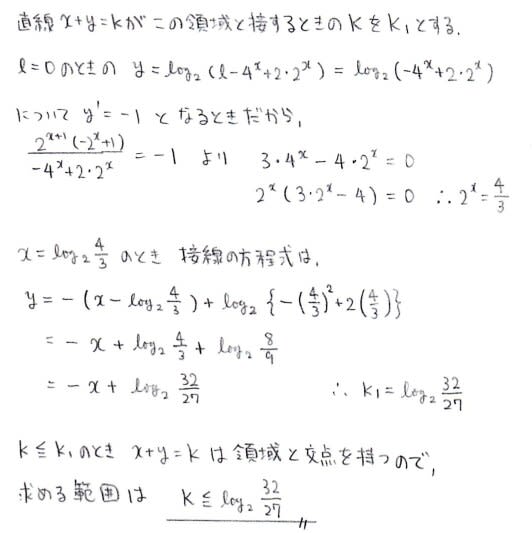 直線 x+y=k がこの領域と接するときの k を k₁ とする.
l=0 のときの y=log₂(l-4^x+2・2^x) = log₂(-4^x+2・2^x)
について y'=-1 となるときだから,
\frac{2^{x+1}(-2^x+1)}{-4^x+2・2^x} = -1 より 3・4^x - 4・2^x = 0
2^x(3・2^x-4) = 0 ∴ 2^x = \frac{4}{3}
x = log₂\frac{4}{3} のとき 接線の方程式は,
y = -(x - log₂\frac{4}{3}) + log₂{-(\frac{4}{3})^2 + 2(\frac{4}{3})}
= -x + log₂\frac{4}{3} + log₂\frac{8}{9}
= -x + log₂\frac{32}{27} ∴ k₁ = log₂\frac{32}{27}
k≦k₁ のとき x+y=k は領域と交点を持つので,
求める範囲は k≦log₂\frac{32}{27}